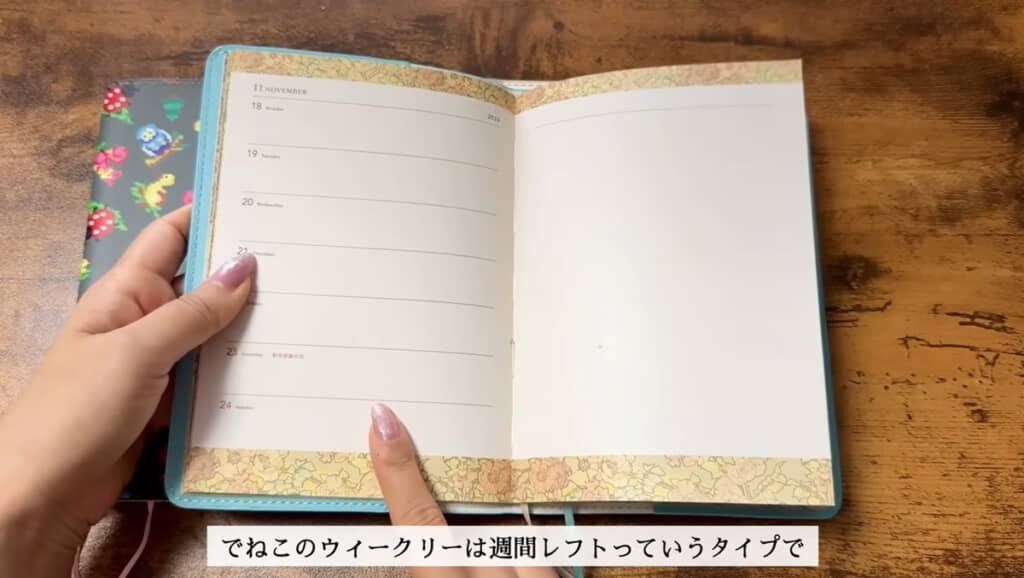 11 NOVEMBER
18 Monday
2024
19 Tuesday
20 Wednesday
21 Thursday
23 Saturday 勤労感謝の日
24 Sunday
でねこのウィークリーは週間レフトっていうタイプで